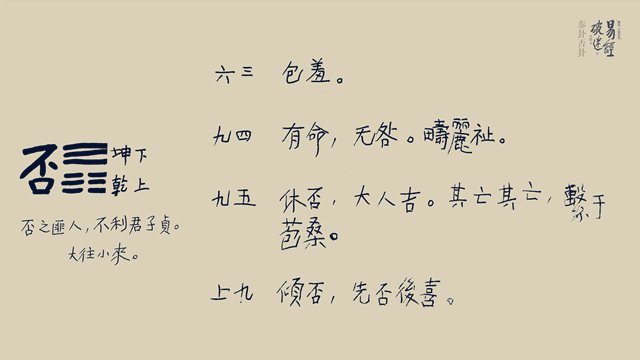 易經
破迷
泰卦否卦
否 坤下
乾上
否之匪人，不利君子貞。
大往小來。
六三 包羞。
九四 有命，无咎。疇麗祉。
九五 休否，大人吉。其亡其亡，繫于
苞桑。
上九 傾否，先否後喜。